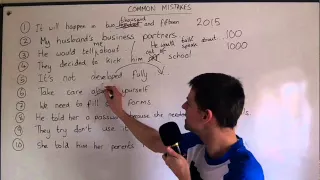 COMMON MISTAKES
thousand
① It will happen in two hundred and fifteen 2015
② My husband's business partners. 100
me He would talk about 1000
③ He would tell about
out of
④ They decided to kick him school
⑤ It's not developed fully
⑥ Take care yourself
⑦ We need to fill forms
⑧ He told her a passport because she need
⑨ They try don't use it
⑩ She told two her parents